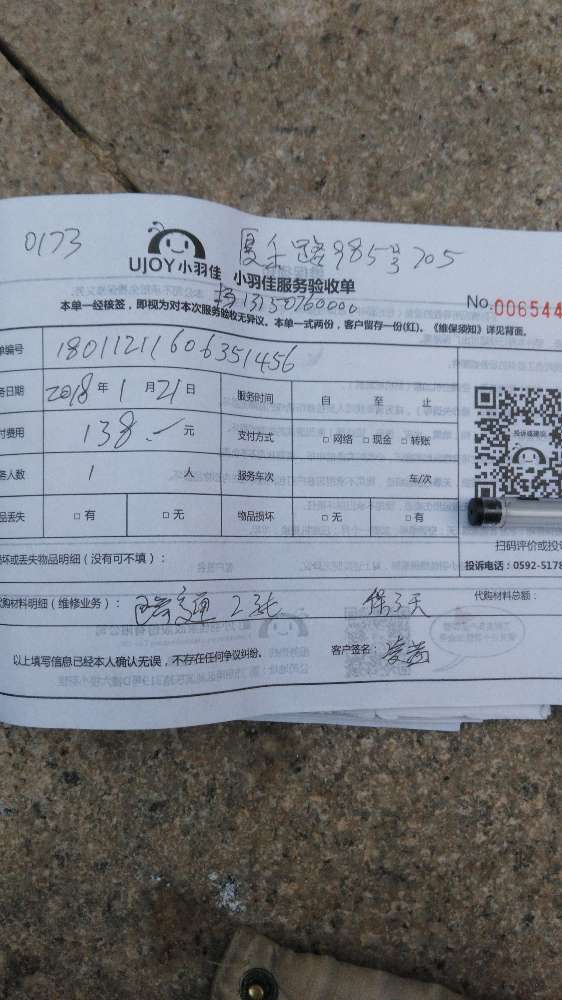 0173
夏禾路985号705
UJOY小羽佳 小羽佳服务验收单
13150760000
本单一经核签,即视为对本次服务验收无异议。本单一式两份,客户留存一份(红)。《维保须知》详见背面。
No.006544
单编号 18011211606351456
务日期 2018年1月21日 服务时间 自 至 止
付费用 138.- 元 支付方式 □网络 □现金 □转账
务人数 1 人 服务车次 车/次
品丢失 □有 □无 物品损坏 □无 □有
投诉或建议
扫码评价或投诉
投诉电话:0592-5178
坏或丢失物品明细(没有可不填):
代购材料明细(维修业务): 疏通 保3天 代购材料总额:
以上填写信息已经本人确认无误,不存在任何争议纠纷。 客户签名: